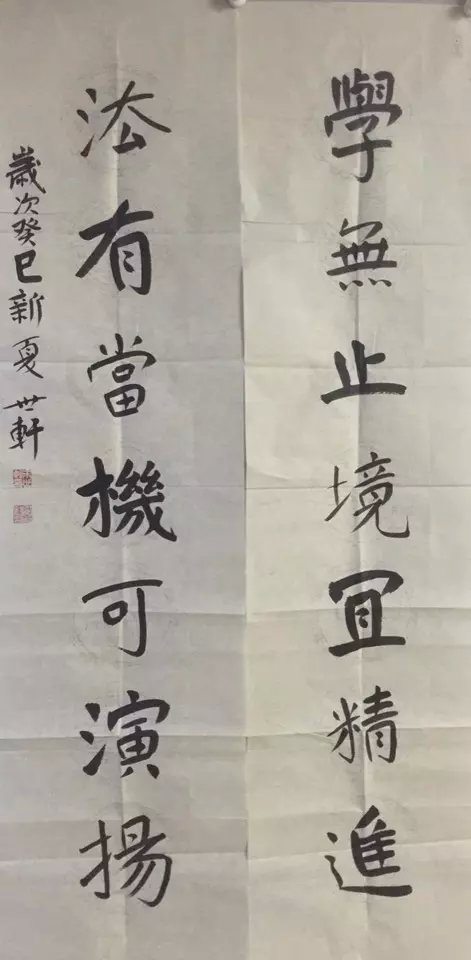 學無止境宜精進
法有當機可演揚
歲次癸巳新夏 世軒